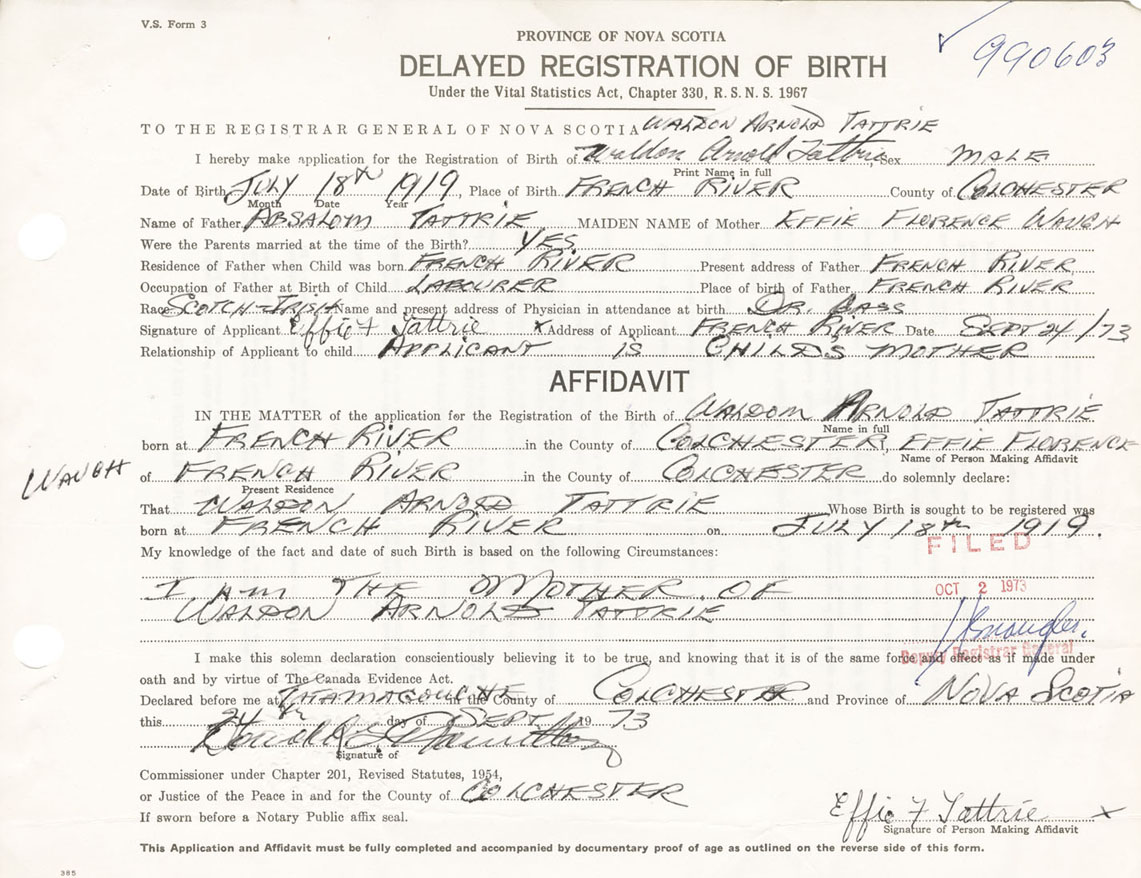 V.S. Form 3
990603
PROVINCE OF NOVA SCOTIA
DELAYED REGISTRATION OF BIRTH
Under the Vital Statistics Act, Chapter 330, R. S. N. S. 1967
TO THE REGISTRAR GENERAL OF NOVA SCOTIA WALDON ARNOLD TATTRIE
I hereby make application for the Registration of Birth of Waldon Arnold Tattrie Sex MALE
Print Name in full
Date of Birth JULY 18th 1919, Place of Birth FRENCH RIVER County of COLCHESTER
Month Date Year
Name of Father ABSALOM TATTRIE MAIDEN NAME of Mother EFFIE FLORENCE WAUGH
Were the Parents married at the time of the Birth? YES.
Residence of Father when Child was born FRENCH RIVER Present address of Father FRENCH RIVER
Occupation of Father at Birth of Child LABOURER Place of birth of Father FRENCH RIVER
Race SCOTCH-IRISH Name and present address of Physician in attendance at birth DR. BASS
Signature of Applicant Effie F Tattrie x Address of Applicant FRENCH RIVER Date SEPT 24/73
Relationship of Applicant to child APPLICANT IS CHILD'S MOTHER
AFFIDAVIT
IN THE MATTER of the application for the Registration of the Birth of WALDOM ARNOLD TATTRIE
Name in full
born at FRENCH RIVER in the County of COLCHESTER I, EFFIE FLORENCE
Name of Person Making Affidavit
WAUGH of FRENCH RIVER in the County of COLCHESTER do solemnly declare:
Present Residence
That WALDON ARNOLD TATTRIE Whose Birth is sought to be registered was
born at FRENCH RIVER on JULY 18th 1919.
FILED
My knowledge of the fact and date of such Birth is based on the following Circumstances:
I am THE MOTHER OF
OCT 2 1973
WALDON ARNOLD TATTRIE
Deputy Registrar General
I make this solemn declaration conscientiously believing it to be true, and knowing that it is of the same force and effect as if made under
oath and by virtue of The Canada Evidence Act.
Declared before me at TATAMAGOUCHE in the County of COLCHESTER and Province of NOVA SCOTIA
this 24th day of SEPT. 19 73
Signature of
Commissioner under Chapter 201, Revised Statutes, 1954,
or Justice of the Peace in and for the County of COLCHESTER
If sworn before a Notary Public affix seal.
Effie F Tattrie x
Signature of Person Making Affidavit
This Application and Affidavit must be fully completed and accompanied by documentary proof of age as outlined on the reverse side of this form.
385